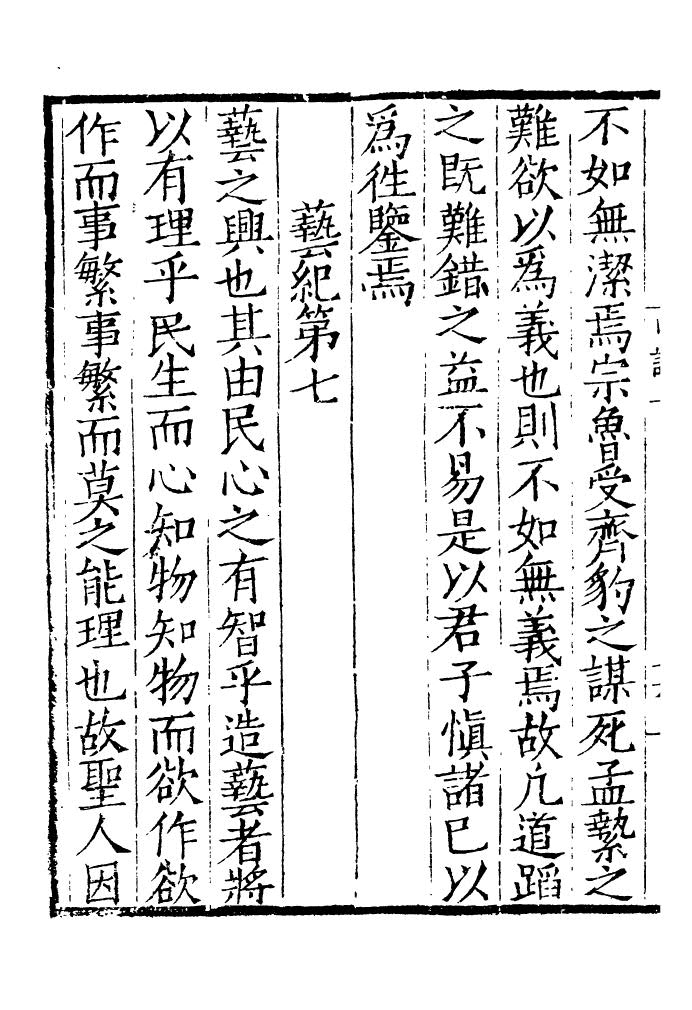 不如無潔焉宗魯受齊豹之謀死孟縶之
難欲以爲義也則不如無義焉故凡道蹈
之旣難錯之益不易是以君子愼諸已以
爲徃鑒焉
藝紀第七
藝之興也其由民心之有智乎造藝者將
以有理乎民生而心知物知物而欲作欲
作而事繁事繁而莫之能理也故聖人因